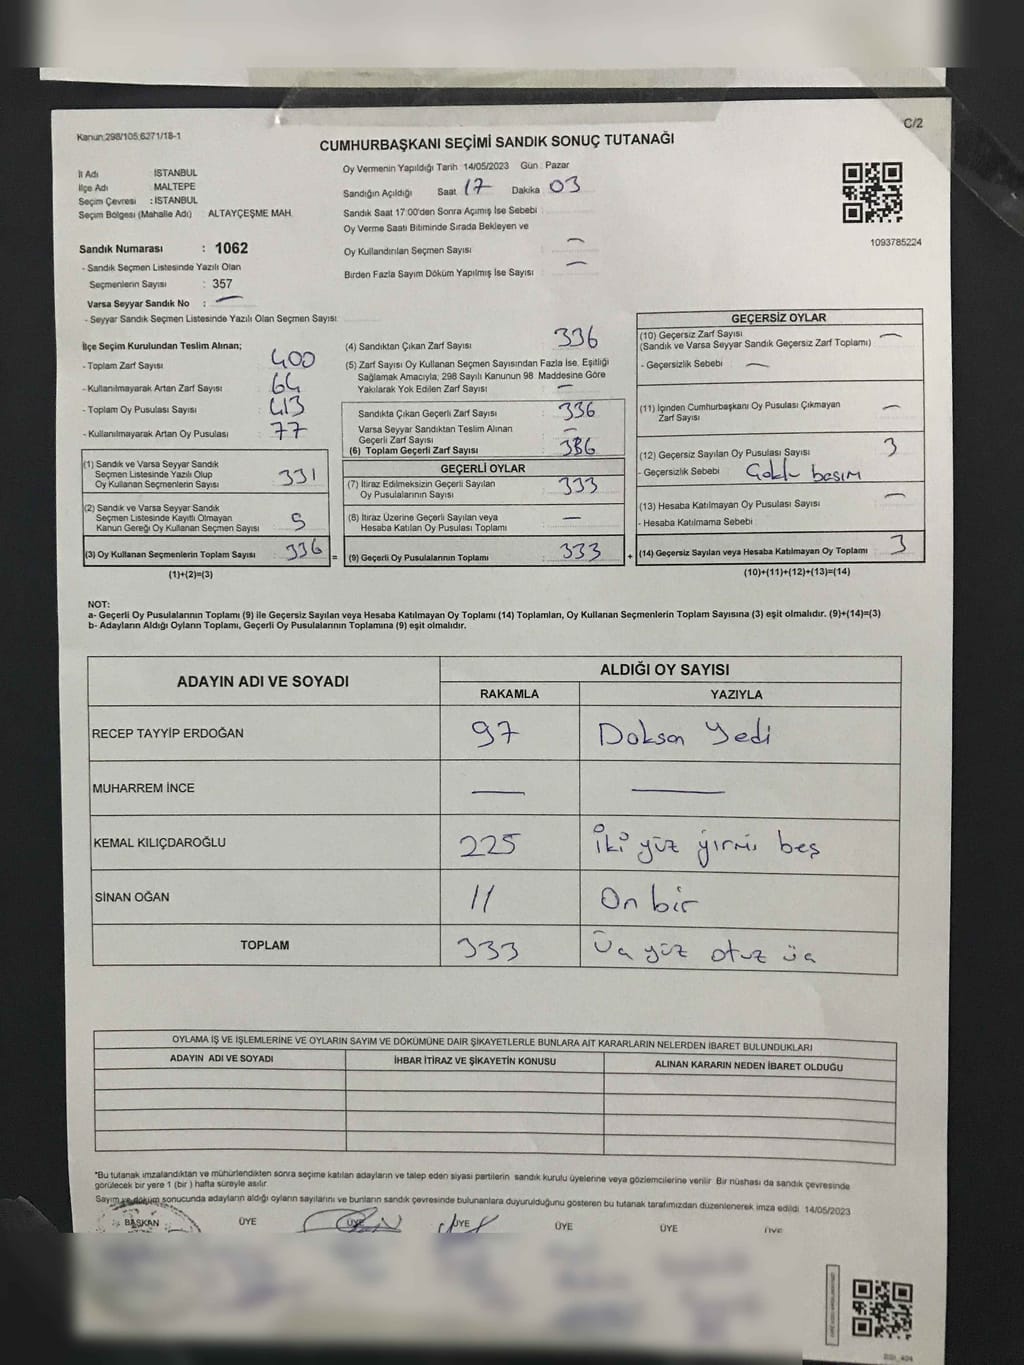 Kanun:298/105,6271/18-1
C/2
CUMHURBAŞKANI SEÇİMİ SANDIK SONUÇ TUTANAĞI
İl Adı İSTANBUL
İlçe Adı MALTEPE
Seçim Çevresi : İSTANBUL
Seçim Bölgesi (Mahalle Adı) ALTAYÇEŞME MAH.
Oy Vermenin Yapıldığı Tarih 14/05/2023 Gün : Pazar
Sandığın Açıldığı Saat 17 Dakika 03
Sandık Saat 17:00'den Sonra Açımış İse Sebebi
Oy Verme Saati Bitiminde Sırada Bekleyen ve
Oy Kullandırılan Seçmen Sayısı —
Birden Fazla Sayım Döküm Yapılmış İse Sayısı —
1093785224
Sandık Numarası : 1062
- Sandık Seçmen Listesinde Yazılı Olan
Seçmenlerin Sayısı : 357
Varsa Seyyar Sandık No : —
- Seyyar Sandık Seçmen Listesinde Yazılı Olan Seçmen Sayısı
İlçe Seçim Kurulundan Teslim Alınan;
- Toplam Zarf Sayısı : 400
- Kullanılmayarak Artan Zarf Sayısı : 64
- Toplam Oy Pusulası Sayısı : 413
- Kullanılmayarak Artan Oy Pusulası : 77
(1) Sandık ve Varsa Seyyar Sandık
Seçmen Listesinde Yazılı Olup
Oy Kullanan Seçmenlerin Sayısı : 331
(2) Sandık ve Varsa Seyyar Sandık
Seçmen Listesinde Kayıtlı Olmayan
Kanun Gereği Oy Kullanan Seçmen Sayısı : 5
(3) Oy Kullanan Seçmenlerin Toplam Sayısı : 336 =
(1)+(2)=(3)
(4) Sandıktan Çıkan Zarf Sayısı : 336
(5) Zarf Sayısı Oy Kullanan Seçmen Sayısından Fazla İse, Eşitliği
Sağlamak Amacıyla; 298 Sayılı Kanunun 98. Maddesine Göre
Yakılarak Yok Edilen Zarf Sayısı : —
Sandıkta Çıkan Geçerli Zarf Sayısı : 336
Varsa Seyyar Sandıktan Teslim Alınan
Geçerli Zarf Sayısı : —
(6) Toplam Geçerli Zarf Sayısı : 336
GEÇERLİ OYLAR
(7) İtiraz Edilmeksizin Geçerli Sayılan
Oy Pusulalarının Sayısı : 333
(8) İtiraz Üzerine Geçerli Sayılan veya
Hesaba Katılan Oy Pusulası Toplamı : —
(9) Geçerli Oy Pusulalarının Toplamı : 333 +
GEÇERSİZ OYLAR
(10) Geçersiz Zarf Sayısı : —
(Sandık ve Varsa Seyyar Sandık Geçersiz Zarf Toplamı)
- Geçersizlik Sebebi : —
(11) İçinden Cumhurbaşkanı Oy Pusulası Çıkmayan
Zarf Sayısı —
(12) Geçersiz Sayılan Oy Pusulası Sayısı 3
- Geçersizlik Sebebi basım
(13) Hesaba Katılmayan Oy Pusulası Sayısı : —
- Hesaba Katılmama Sebebi
(14) Geçersiz Sayılan veya Hesaba Katılmayan Oy Toplamı : 3
(10)+(11)+(12)+(13)=(14)
NOT:
a- Geçerli Oy Pusulalarının Toplamı (9) ile Geçersiz Sayılan veya Hesaba Katılmayan Oy Toplamı (14) Toplamları, Oy Kullanan Seçmenlerin Toplam Sayısına (3) eşit olmalıdır. (9)+(14)=(3)
b- Adayların Aldığı Oyların Toplamı, Geçerli Oy Pusulalarının Toplamına (9) eşit olmalıdır.
ADAYIN ADI VE SOYADI
ALDIĞI OY SAYISI
RAKAMLA YAZIYLA
RECEP TAYYİP ERDOĞAN 97 Doksan Yedi
MUHARREM İNCE — —
KEMAL KILIÇDAROĞLU 225 İki yüz yirmi beş
SİNAN OĞAN 11 On bir
TOPLAM 333 Üç yüz otuz üç
OYLAMA İŞ VE İŞLEMLERİNE VE OYLARIN SAYIM VE DÖKÜMÜNE DAİR ŞİKAYETLERLE BUNLARA AİT KARARLARIN NELERDEN İBARET BULUNDUKLARI
ADAYIN ADI VE SOYADI İHBAR İTİRAZ VE ŞİKAYETİN KONUSU ALINAN KARARIN NEDEN İBARET OLDUĞU
*Bu tutanak imzalandıktan ve mühürlendikten sonra seçime katılan adayların ve talep eden siyasi partilerin sandık kurulu üyelerine veya gözlemcilerine verilir. Bir nüshası da sandık çevresinde
görülecek bir yere 1 (bir ) hafta süreyle asılır.
Sayım ve döküm sonucunda adayların aldığı oyların sayılarını ve bunların sandık çevresinde bulunanlara duyurulduğunu gösteren bu tutanak tarafımızdan düzenlenerek imza edildi. 14/05/2023
BAŞKAN ÜYE ÜYE ÜYE ÜYE ÜYE ÜYE